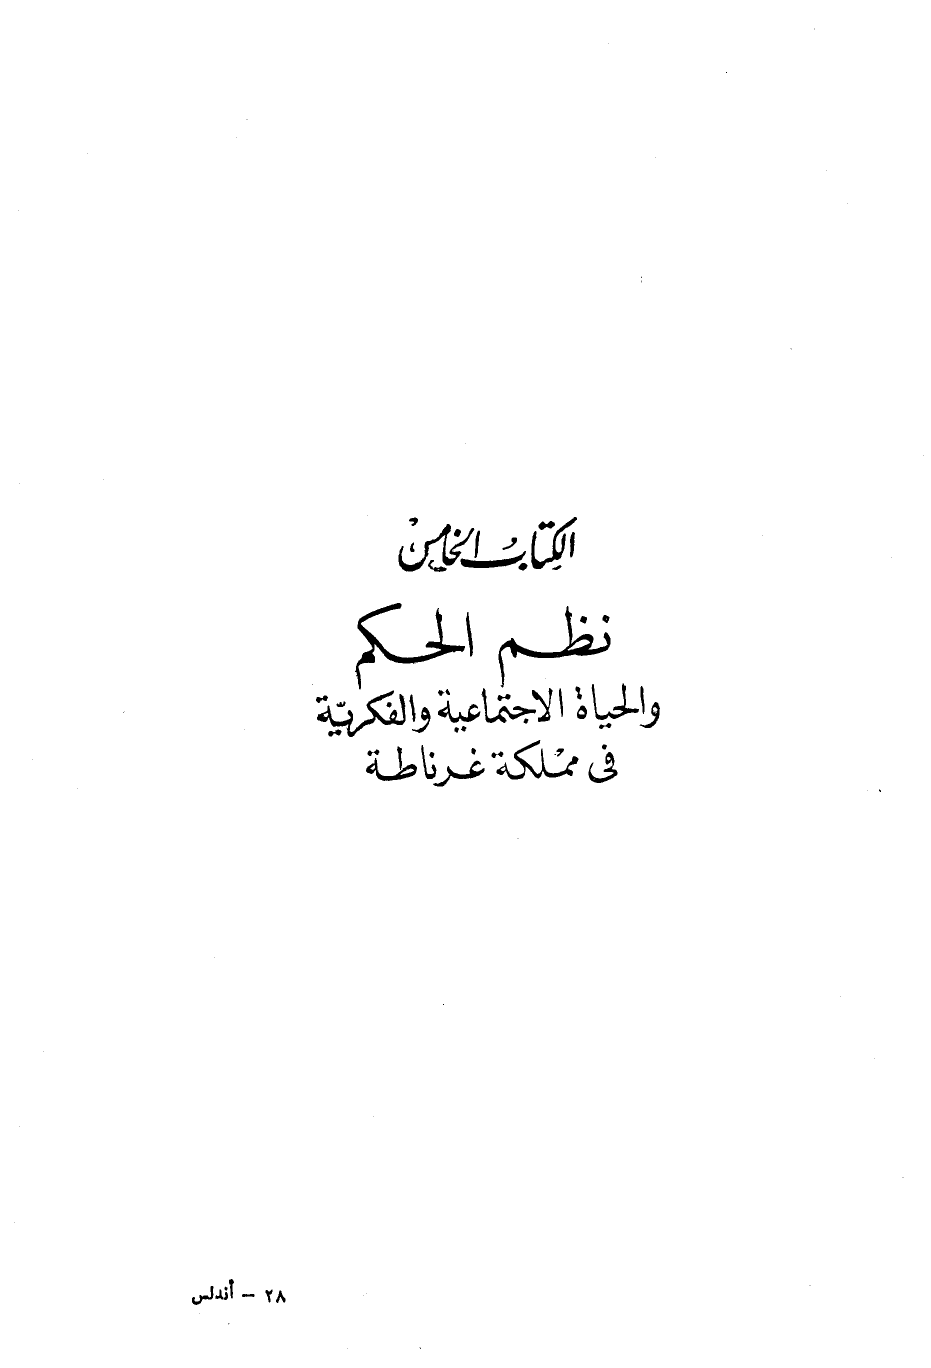 الكتاب الخامس
نظم الحكم
والحياة الاجتماعية والفكريّة
فى مملكة غرناطة
٢٨ – أندلس